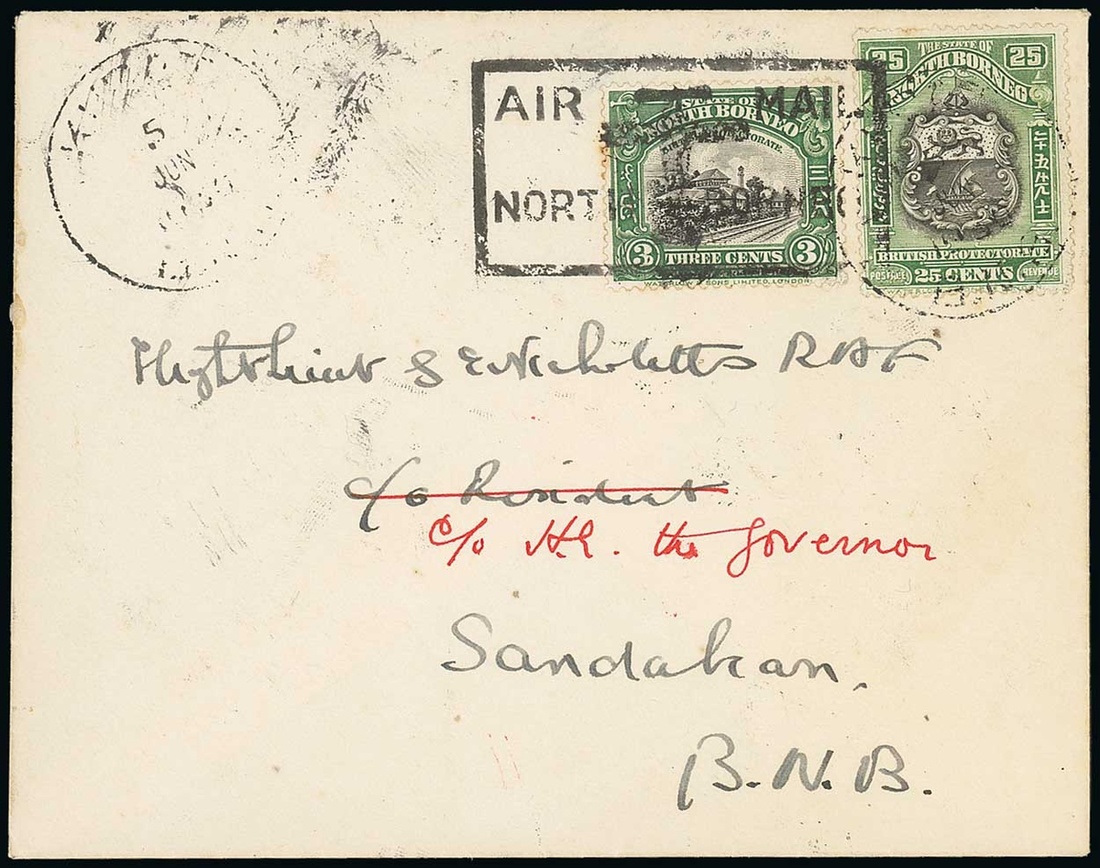 5
JUN
AIR MAIL
NORTH BORNEO
STATE OF
NORTH BORNEO
BRITISH PROTECTORATE.
3 THREE CENTS 3
WATERLOW & SONS LIMITED, LONDON
25 THE STATE OF 25
NORTH BORNEO
BRITISH PROTECTORATE
POSTAGE 25 CENTS REVENUE
Flight Lieut G E Nicholetts RAF
c/o Resident
c/o H.E. the Governor
Sandakan.
B.N.B.